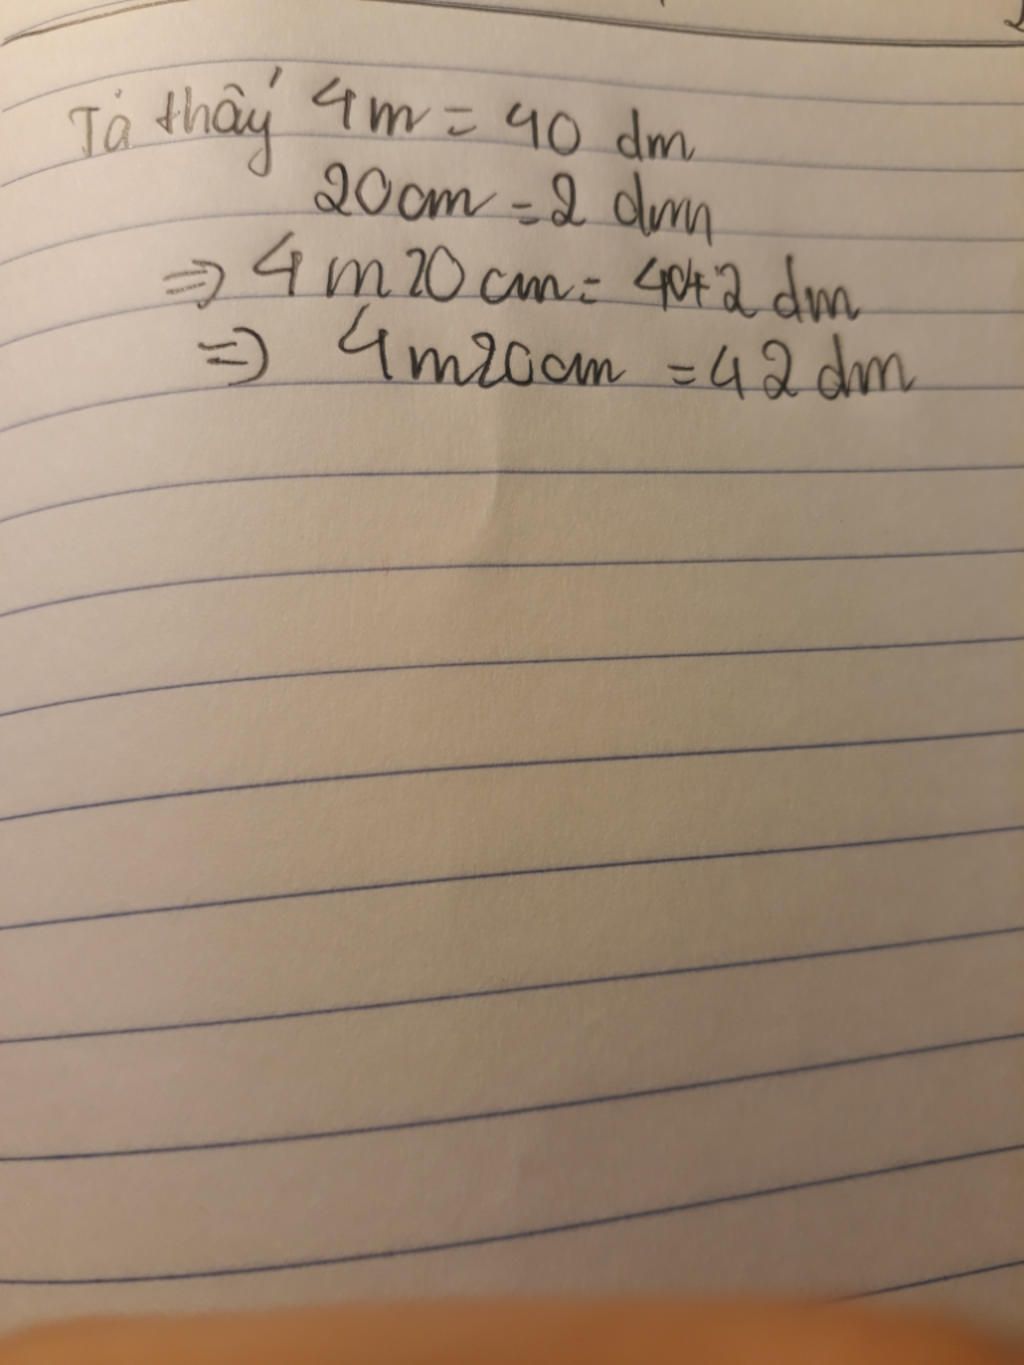 Ta thấy 4m = 40 dm
20cm = 2 dm
=> 4m20cm = 40+2 dm
=> 4m20cm = 42 dm